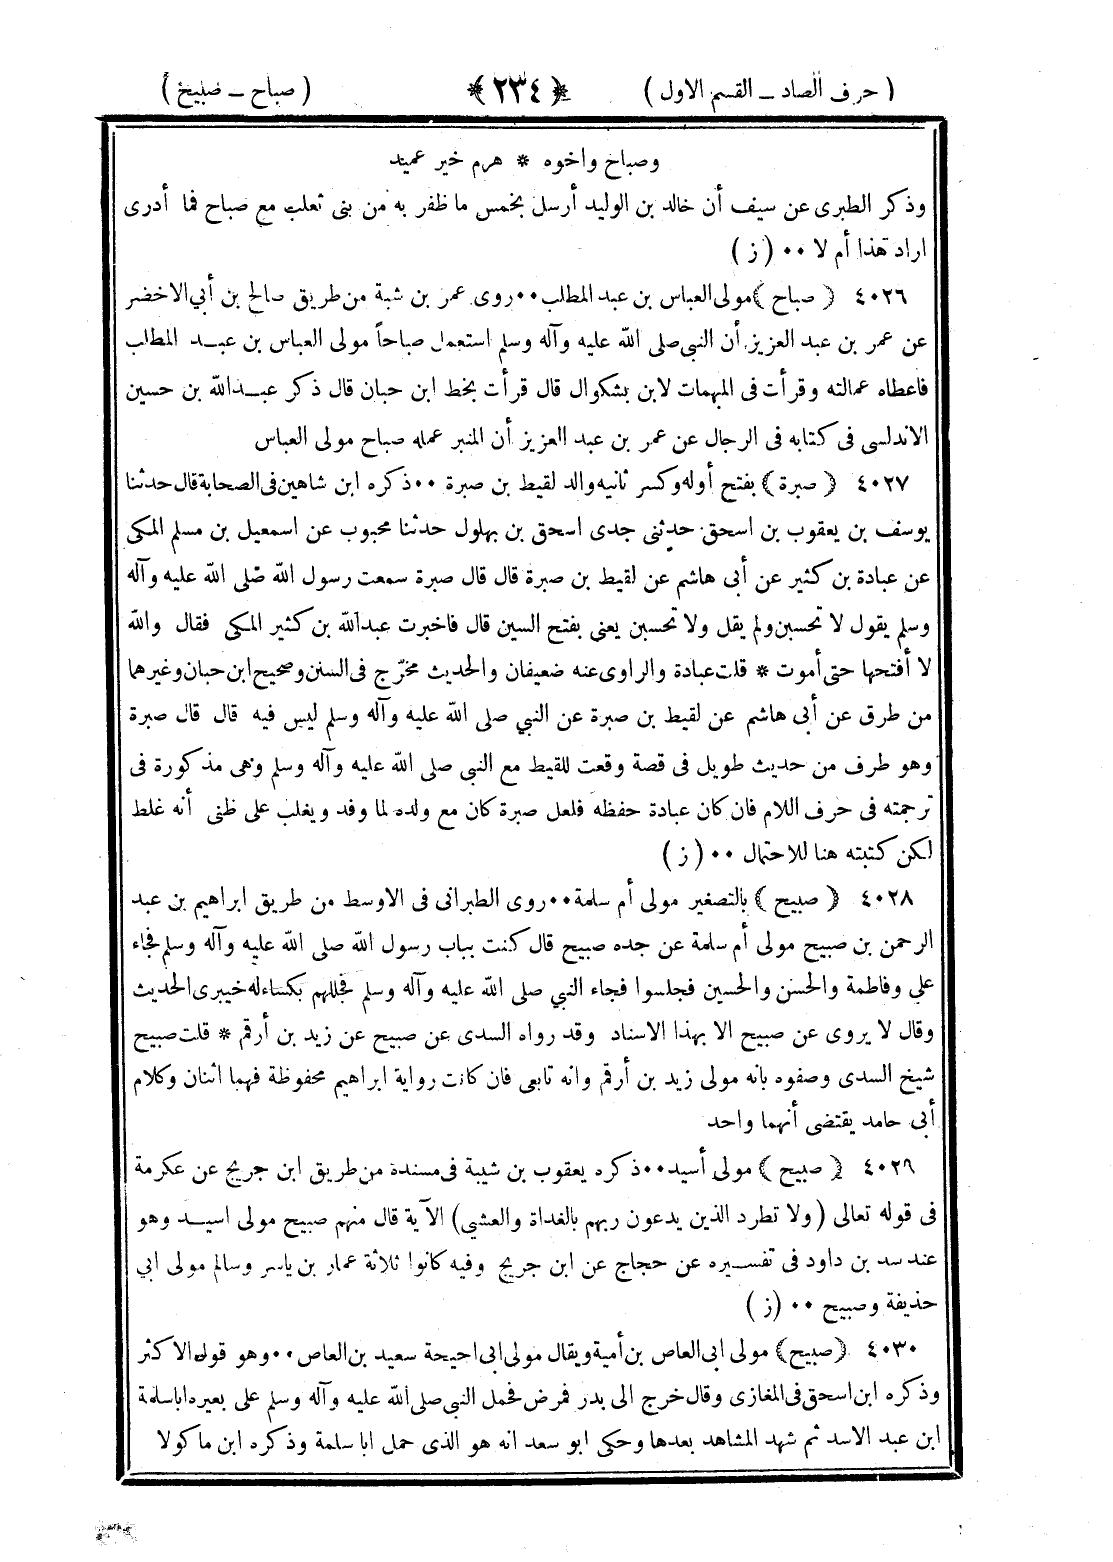 ( حرف الصاد ــ القسم الاول ) ﴿ ٢٣٤ ﴾ ( صباح ــ صبيح )
وصباح واخوه * هرم خير عميد
وذكر الطبرى عن سيف أن خالد بن الوليد أرسل بخمس ما ظفر به من بنى تغلب مع صباح فما أدرى
اراد هذا أم لا ٠٠ ( ز )
٤٠٢٦ ﴿ صباح ﴾ مولى العباس بن عبد المطلب ٠٠ روى عمر بن شبة من طريق صالح بن أبي الاخضر
عن عمر بن عبد العزيز أن النبي صلى الله عليه وآله وسلم استعمل صباحاً مولى العباس بن عبـد المطلب
فاعطاه عمالته وقرأت فى المبهمات لابن بشكوال قال قرأت بخط ابن حبان قال ذكر عبـدالله بن حسين
الاندلسى فى كتابه فى الرجال عن عمر بن عبد العزيز أن المنبر عمله صباح مولى العباس
٤٠٢٧ ﴿ صبرة ﴾ بفتح أوله وكسر ثانيه والد لقيط بن صبرة ٠٠ ذكره ابن شاهين فى الصحابة قال حدثنا
يوسف بن يعقوب بن اسحق حدثنى جدى اسحق بن بهلول حدثنا محبوب عن اسمعيل بن مسلم المكى
عن عبادة بن كثير عن أبى هاشم عن لقيط بن صبرة قال قال صبرة سمعت رسول الله صلى الله عليه وآله
وسلم يقول لا تحسبن ولم يقل ولا تحسبن يعنى بفتح السين قال فاخبرت عبدالله بن كثير المكى فقال والله
لا أفتحها حتى أموت * قلت عبادة والراوى عنه ضعيفان والحديث مخرّج فى السنن وصحيح ابن حبان وغيرهما
من طرق عن أبى هاشم عن لقيط بن صبرة عن النبي صلى الله عليه وآله وسلم ليس فيه قال قال صبرة
وهو طرف من حديث طويل فى قصة وقعت للقيط مع النبي صلى الله عليه وآله وسلم وهى مذكورة فى
ترجمته فى حرف اللام فان كان عبادة حفظه فلعل صبرة كان مع ولده لما وفد ويغلب على ظنى أنه غلط
لكن كتبته هنا للاحتمال ٠٠ ( ز )
٤٠٢٨ ﴿ صبيح ﴾ بالتصغير مولى أم سلمة ٠٠ روى الطبرانى فى الاوسط من طريق ابراهيم بن عبد
الرحمن بن صبيح مولى أم سلمة عن جده صبيح قال كنت بباب رسول الله صلى الله عليه وآله وسلم فجاء
على وفاطمة والحسن والحسين فجلسوا فجاء النبي صلى الله عليه وآله وسلم فجللهم بكساء له خيبرى الحديث
وقال لا يروى عن صبيح الا بهذا الاسناد وقد رواه السدى عن صبيح عن زيد بن أرقم * قلت صبيح
شيخ السدى وصفوه بانه مولى زيد بن أرقم وانه تابعى فان كانت رواية ابراهيم محفوظة فهما اثنان وكلام
أبى حامد يقتضى أنهما واحد
٤٠٢٩ ﴿ صبيح ﴾ مولى أسيد ٠٠ ذكره يعقوب بن شيبة فى مسنده من طريق ابن جريج عن عكرمة
فى قوله تعالى ( ولا تطرد الذين يدعون ربهم بالغداة والعشي ) الآية قال منهم صبيح مولى اسيـد وهو
عند سد بن داود فى تفسـيره عن حجاج عن ابن جريج وفيه كانوا ثلاثة عمار بن ياسر وسالم مولى ابي
حذيفة وصبيح ٠٠ ( ز )
٤٠٣٠ ﴿ صبيح ﴾ مولى ابى العاص بن أمية ويقال مولى ابى احيحة سعيد بن العاص ٠٠ وهو قول الاكثر
وذكره ابن اسحق فى المغازى وقال خرج الى بدر فمرض فحمل النبي صلى الله عليه وآله وسلم على بعيره ابا سلمة
ابن عبد الاسد ثم شهد المشاهد بعدها وحكى ابو سعد انه هو الذى حمل ابا سلمة وذكره ابن ماكولا